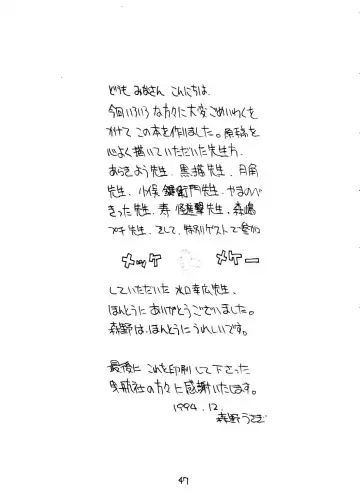 どうも みなさん こんにちは.
今回いろいろな方々に大変ごめいわくを
かけて この本を作りました。原稿を
心よく描いていただいた先生方、
あらきよう先生、黒猫先生、日角
先生、小俣 鎌衛門先生、やまのべ
きった先生、寿 怪進撃先生、森嶋
プチ先生、そして、特別ゲストで参加
メッケ メケー
していただいた 水口幸広先生、
ほんとうに ありがとうございました。
森野は、ほんとうにうれしいです。
最後に これを印刷して下さった
社の方々に感謝いたします。
1994.12.
森野うさぎ
47